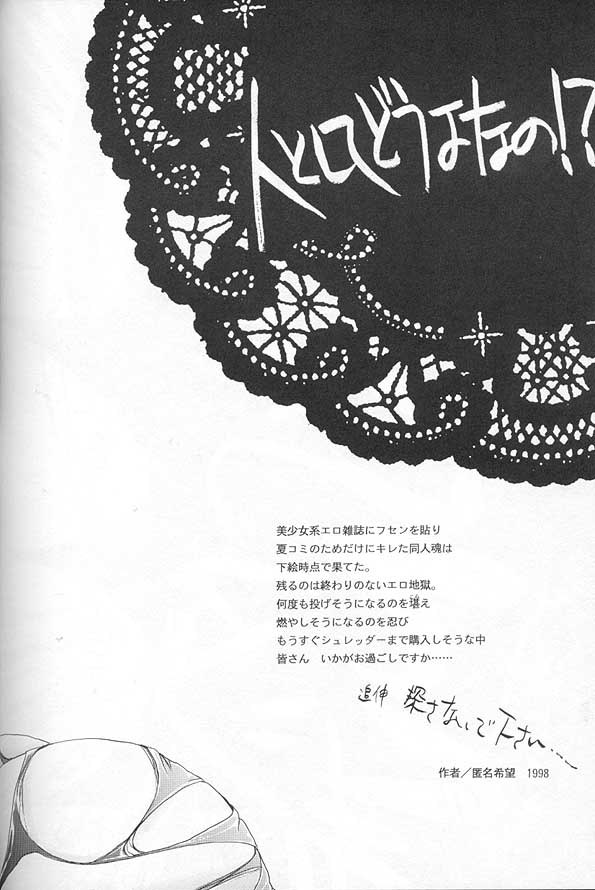 人としてどうよなの!?
美少女系エロ雑誌にフセンを貼り
夏コミのためだけにキレた同人魂は
下絵時点で果てた。
残るのは終わりのないエロ地獄。
何度も投げそうになるのを堪え
燃やしそうになるのを忍び
もうすぐシュレッダーまで購入しそうな中
皆さん　いかがお過ごしですか……
追伸　探さないで下さい…
作者／匿名希望　1998